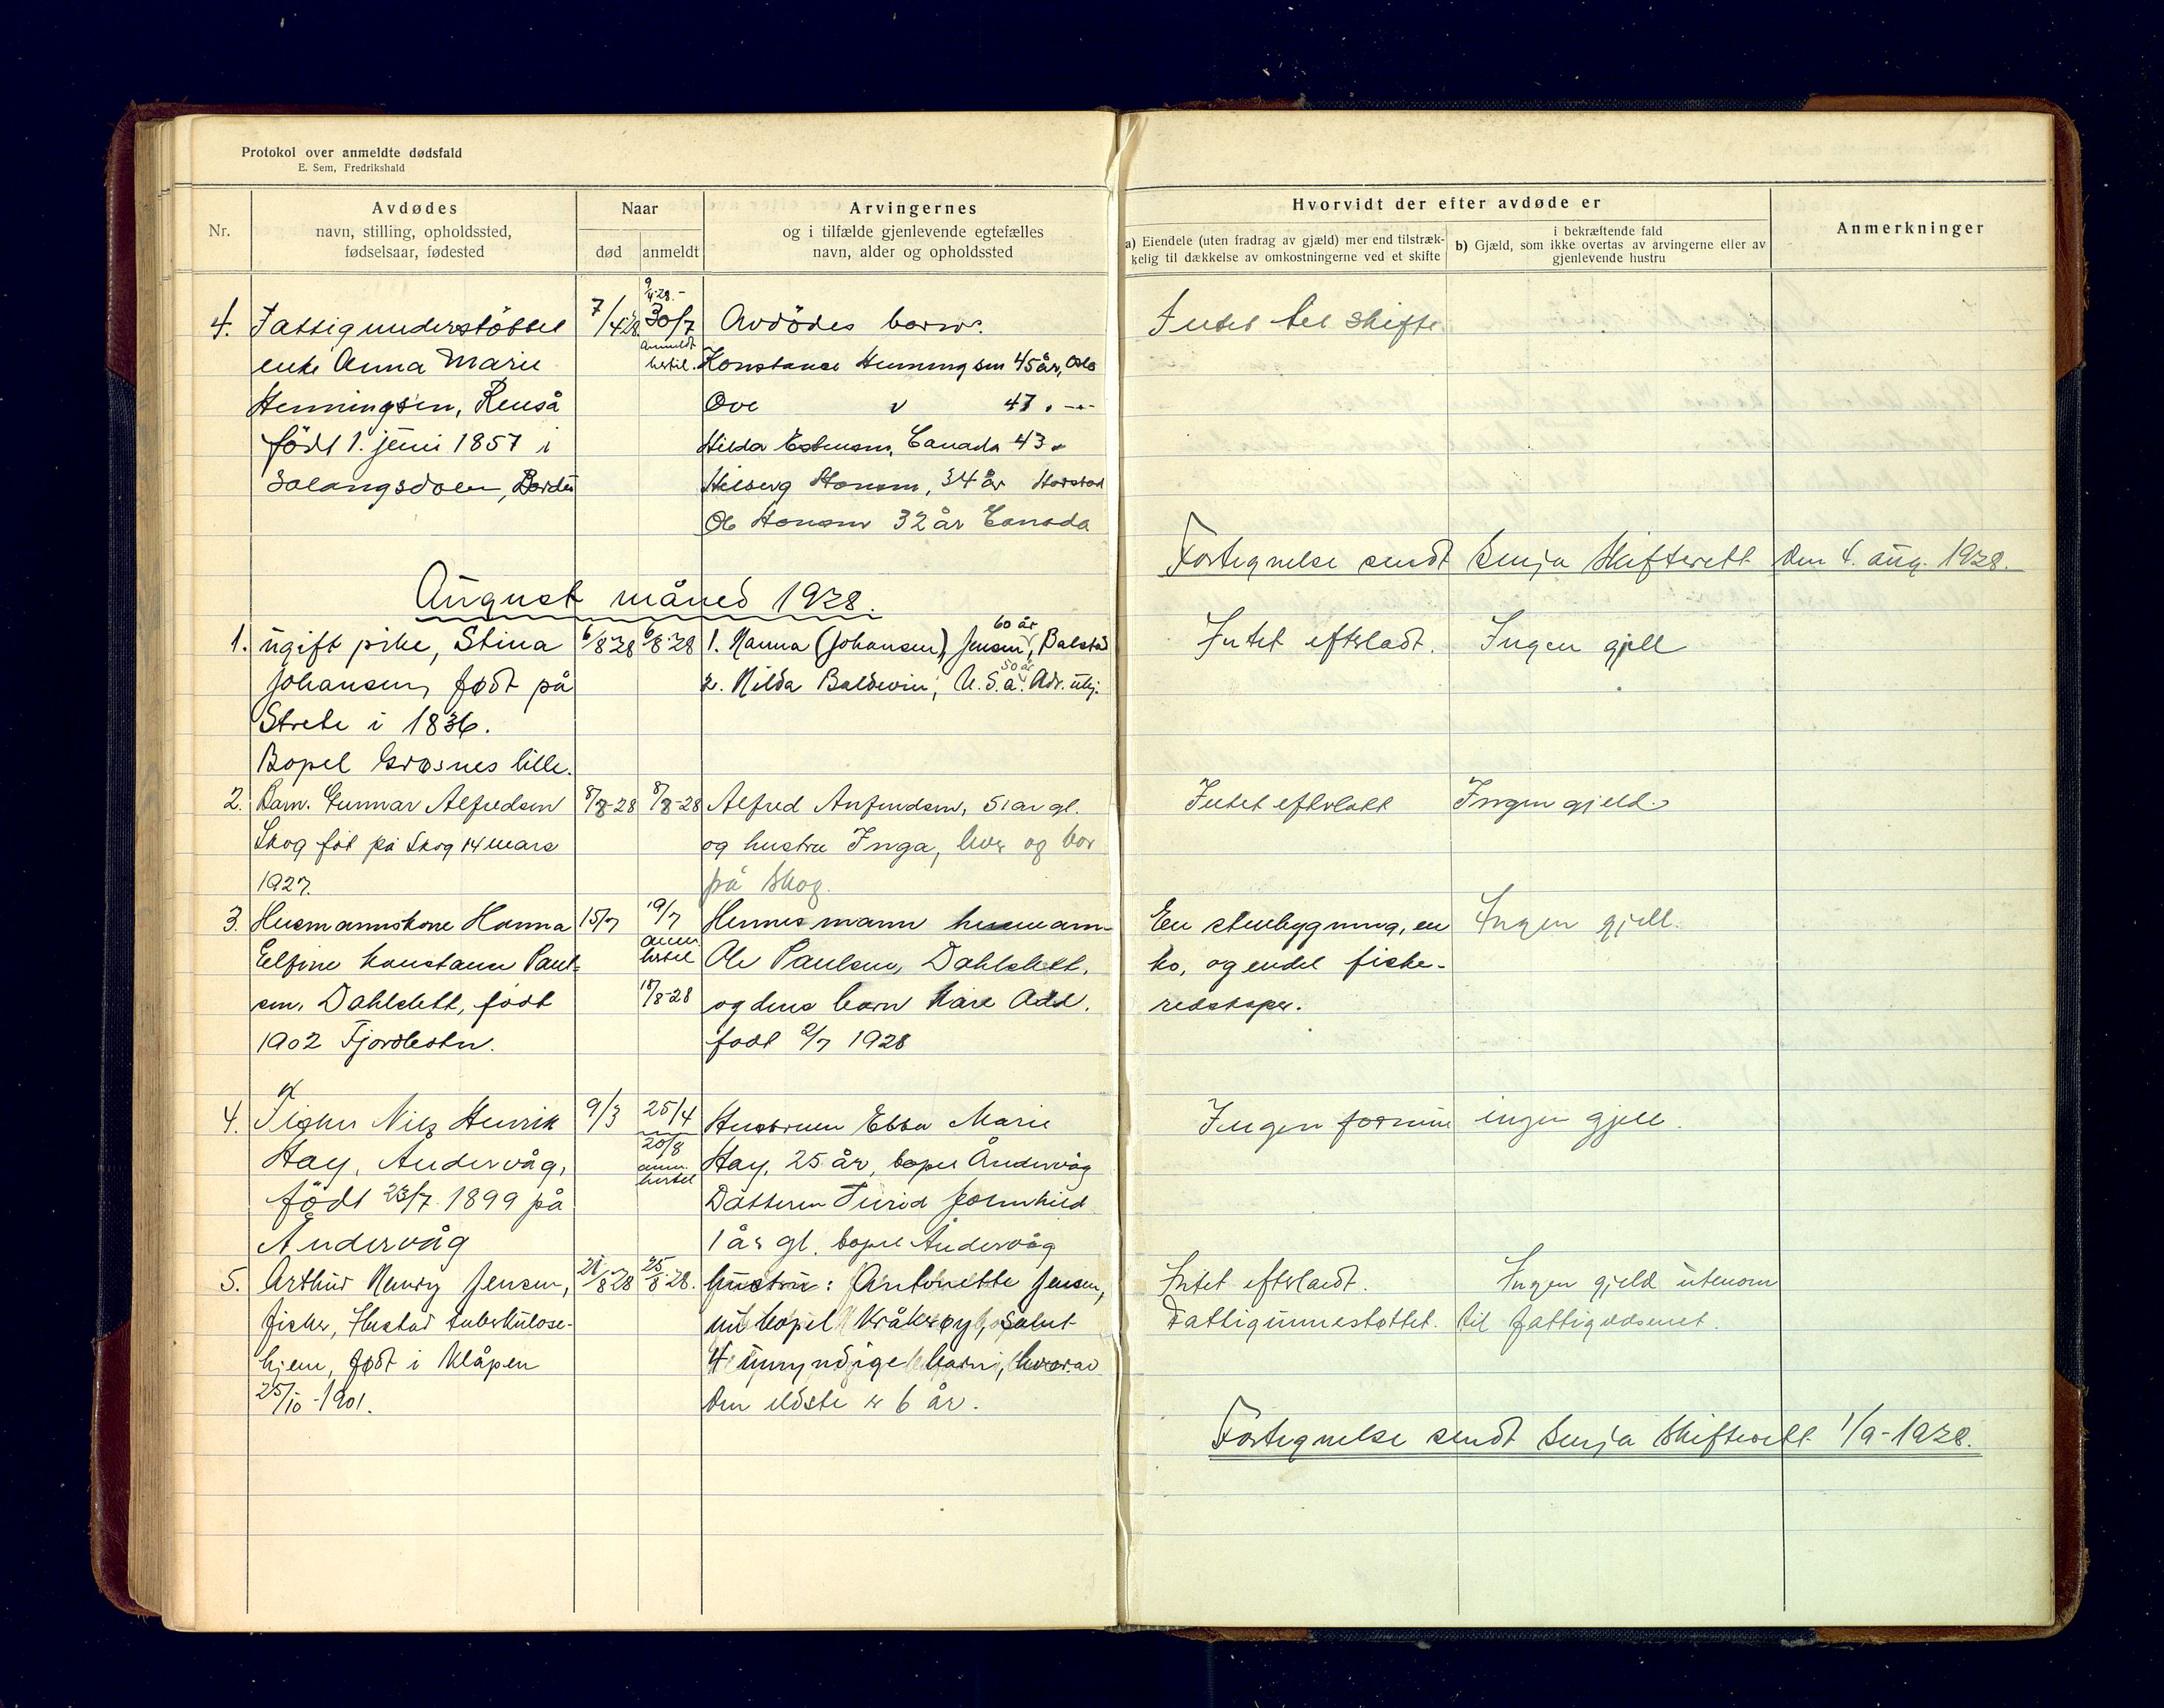 Protokol over anmeldte dødsfald
E. Sem, Fredrikshald
Nr.
Avdødes
navn, stilling, opholdssted,
fødselsaar, fødested
Naar
død
anmeldt
Arvingernes
og i tilfælde gjenlevende egtefælles
navn, alder og opholdssted
Hvorvidt der efter avdøde er
a) Eiendele (uten fradrag av gjæld) mer end tilstræk-
kelig til dækkelse av omkostningerne ved et skifte
i bekræftende fald
b) Gjæld, som ikke overtas av arvingerne eller av
gjenlevende hustru
Anmerkninger
4. Fattigunderstöttet 7/4 28 9/4.28.- 30/7 Avdödes barn: Intet til skifte
enke Anna Marie anmeldt hertil. Konstance Henningsen 45 år, Oslo
Henningsen, Renså Ove " 47 " -"-
född 1. juni 1857 i Hilda Estensen, Canada 43 "
Salangsdalen, Bardu 34 år Harstad
Ole Hansen 32 år Canada
Fortegnelse sendt Senja Skifterett den 4. aug. 1928.
August måned 1928.
1. ugift pike, Stina 6/8 28 6/8-28 1. Nanna (Johansen) Jensen, 60 år Balstad Intet efterladt. Ingen gjell
Johansen, født på 2. Hilda Baldevin, U.S.A. 50 år Adr. ukj.
Strete i 1836.
Bopel Grasnes lille.
2. Barn. Gunnar Alfredsen 8/8-28 8/8-28 Alfred Anfindsen, 51 år gl. Intet efterlatt Ingen gjeld.
Skog föt på Skog 14 mars og hustru Inga, lever og bor
1927. på Skog.
3. Husmannskone Hanna 15/7 19/7 Hennes mann husmann En stuebygning, en Ingen gjell.
Elfine Konstanse Paul- anm. hertil Ole Paulsen, Dahlslett, ko, og endel fiske-
sen, Dahlslett, född 18/8-28 og dens barn Kåre Odd. redskaper.
1902 Fjordbotn. född 2/7 1928
4. Fisker Nils Henrik 9/3 25/4 Hustruen Ebba Marie Ingen formue ingen gjell.
Hay, Andervåg, 20/8 anm. hertil Hay, 25 år, bopel Åndervåg
född 23/7 1899 på Datteren Turid Jormhild
Åndervåg 1 år gl. bopel Åndervåg
5. Arthur Henry Jensen, 21/8 28 25/8 28. hustru: Antonette Jensen, Intet efterladt. Ingen gjeld utenom
fisker, Hustad tuberkulose- bopel Kråkrøy, samt Fattigunnestøttet. til fattigvæsenet.
hjem, født i Klåpen 4 umyndige barn, hvorav
25/10-1901. den eldste er 6 år.
Fortegnelse sendt Senja Skifterett 1/9-1928.